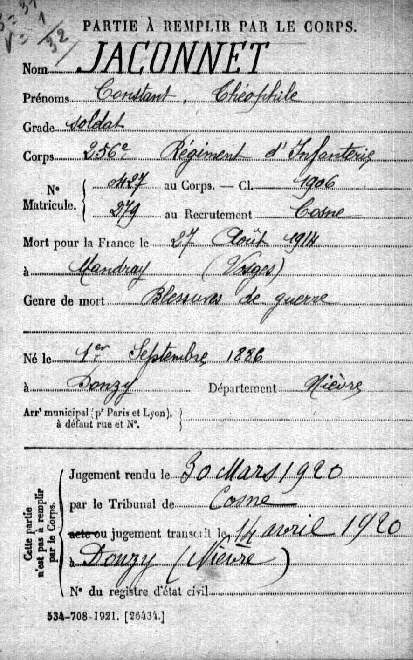 PARTIE À REMPLIR PAR LE CORPS.
Nom JACONNET
Prénoms Constant, Théophile
Grade soldat
Corps 256e Régiment d'Infanterie
N° Matricule. 0427 au Corps. — Cl. 1906
279 au Recrutement Cosne
Mort pour la France le 27 Août 1914
à Mandray (Vosges)
Genre de mort Blessures de guerre
Né le 1er Septembre 1886
à Donzy Département Nièvre
Arrt municipal (pr Paris et Lyon),
à défaut rue et N°.
Cette partie
n'est pas à remplir
par le Corps.
Jugement rendu le 30 Mars 1920
par le Tribunal de Cosne
acte ou jugement transcrit le 14 avril 1920
à Donzy (Nièvre)
N° du registre d'état civil
534-708-1921. [26434.]